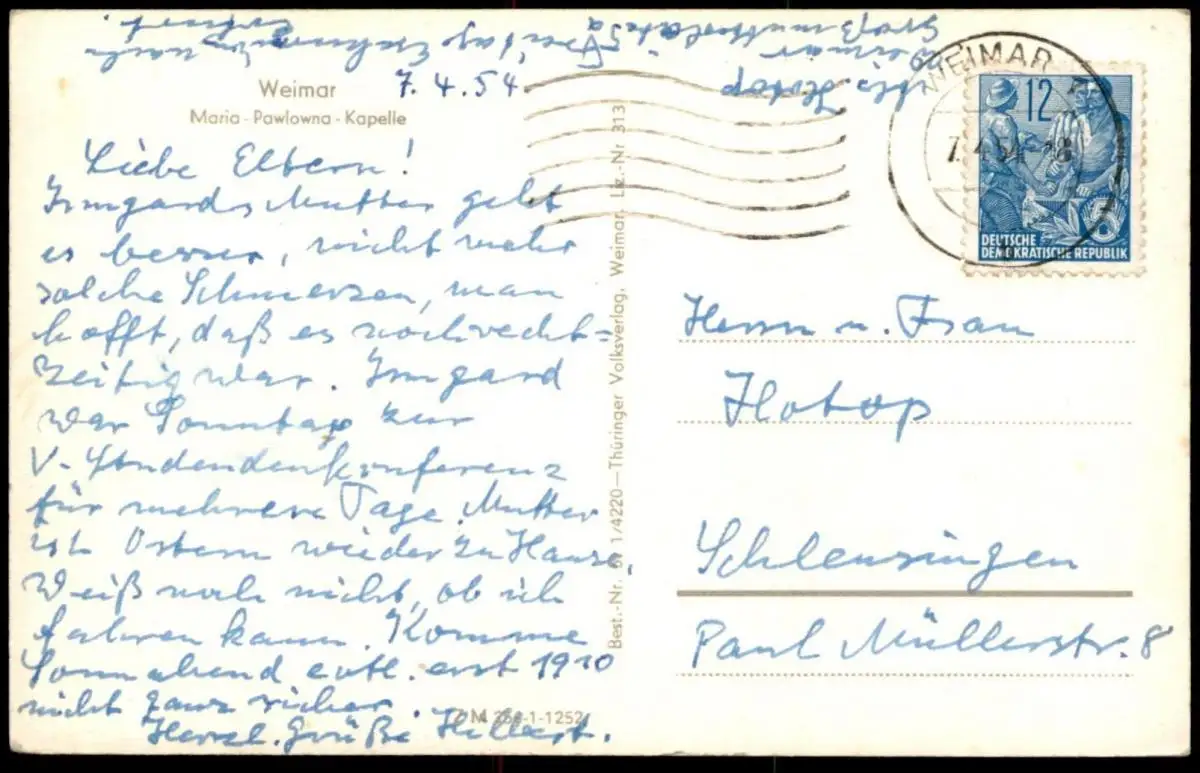 Weimar
Maria-Pawlowna-Kapelle
7.4.54
Liebe Eltern!
Irmgards Mutter geht
es besser, nicht mehr
solche Schmerzen, man
hofft, daß es noch recht-
zeitig war. Irmgard
war Sonntag zur
V. Studendenkonferenz
für mehrere Tage. Mutter
ist Ostern wieder zu Hause.
Weiß noch nicht, ob ich
fahren kann. Komme
Sonnabend evtl. erst 1910
nicht ganz sicher.
Herzl. Grüße Hilbert.
Hotop
Weimar
Best.-Nr. 1/4220—Thüringer Volksverlag, Weimar, Liz.-Nr 313
-1-1252
WEIMAR
7.4.54
12
DEUTSCHE
DEMOKRATISCHE REPUBLIK
Herrn u. Frau
Hotop
Schleusingen
Paul Müllerstr. 8